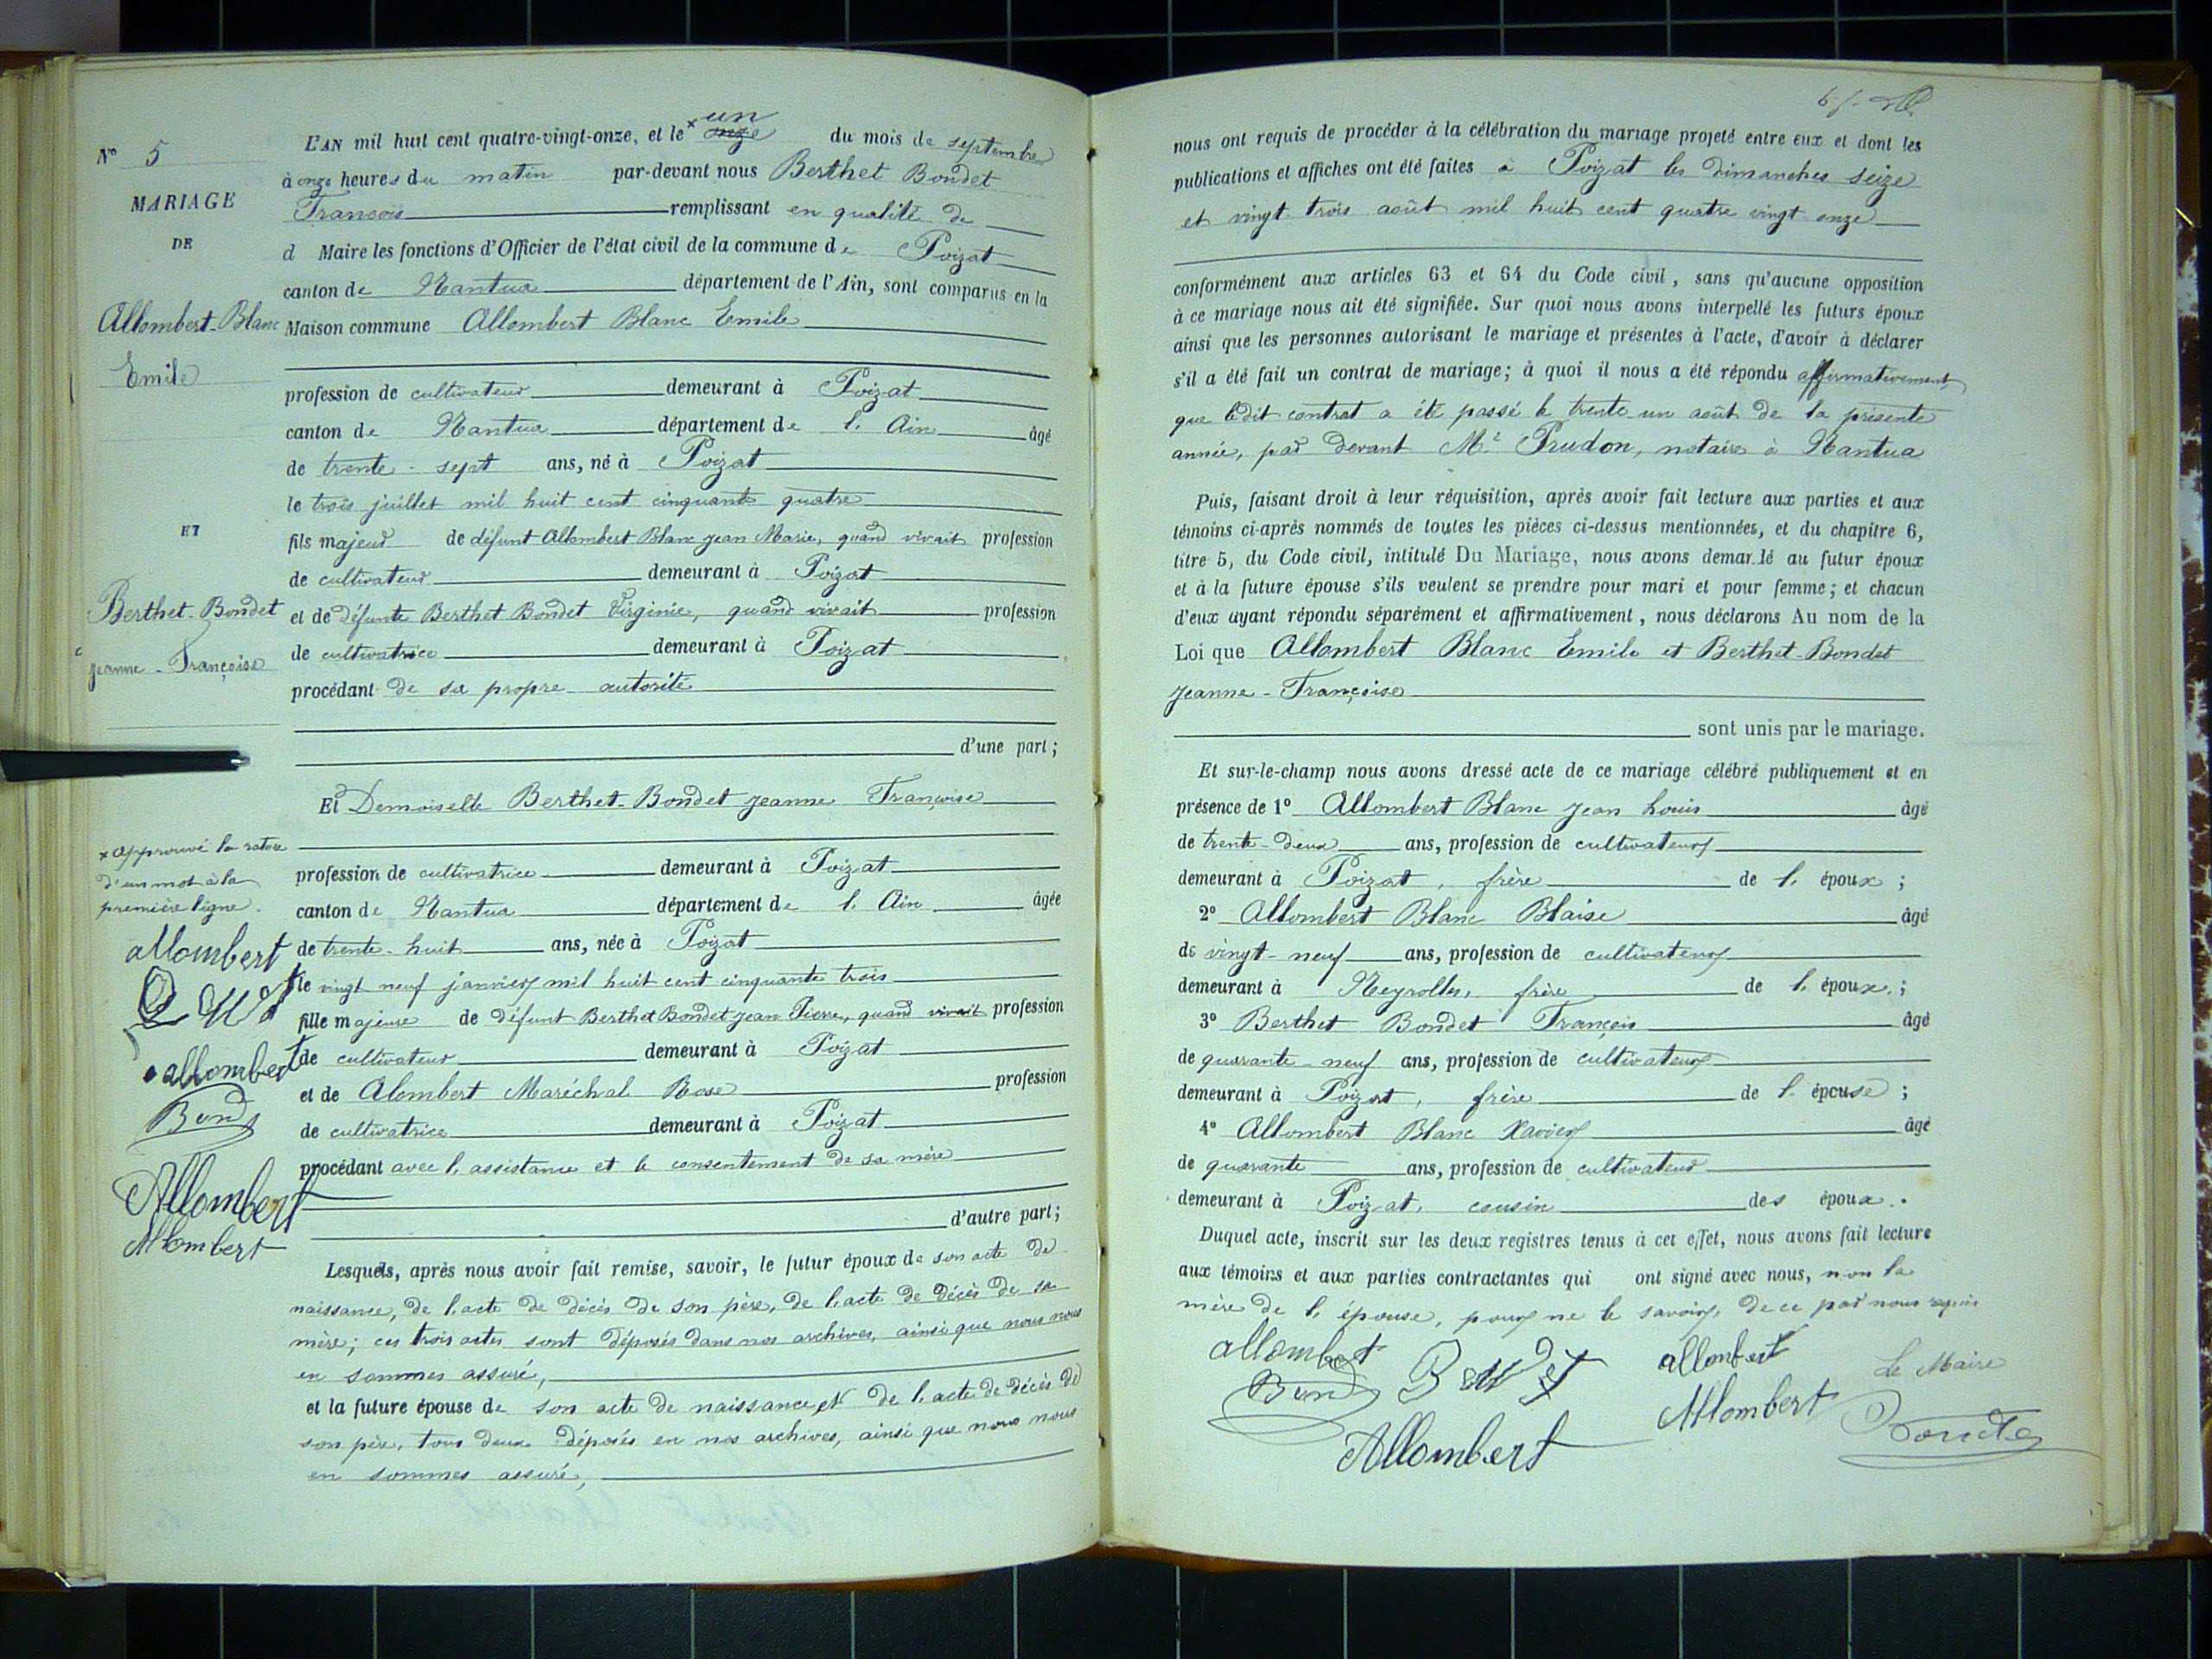 N° 5
MARIAGE
DE
Allombert-Blanc
Emile
ET
Berthet-Bondet
Jeanne-Françoise
× approuvé la rature
d'un mot à la
première ligne.
allombert
allombert
Bond
Allombert
Allombert
L'AN mil huit cent quatre-vingt-onze, et le × onze un du mois de septembre
à onze heures du matin par-devant nous Berthet Bondet
François remplissant en qualité de
d Maire les fonctions d'Officier de l'état civil de la commune de Poizat
canton de Nantua département de l'Ain, sont comparus en la
Maison commune Allombert Blanc Emile
profession de cultivateur demeurant à Poizat
canton de Nantua département de l'Ain âgé
de trente-sept ans, né à Poizat
le trois juillet mil huit cent cinquante quatre
fils majeur de défunt Allombert Blanc Jean Marie, quand vivait profession
de cultivateur demeurant à Poizat
et de défunte Berthet Bondet Virginie, quand vivait profession
de cultivatrice demeurant à Poizat
procédant de sa propre autorité
d'une part;
Et Demoiselle Berthet-Bondet Jeanne Françoise
profession de cultivatrice demeurant à Poizat
canton de Nantua département de l'Ain âgée
de trente-huit ans, née à Poizat
le vingt neuf janvier mil huit cent cinquante trois
fille majeure de défunt Berthet Bondet Jean Pierre, quand vivait profession
de cultivateur demeurant à Poizat
et de Alombert Maréchal Rose profession
de cultivatrice demeurant à Poizat
procédant avec l'assistance et le consentement de sa mère
d'autre part;
Lesquels, après nous avoir fait remise, savoir, le futur époux de son acte de
naissance, de l'acte de décès de son père, de l'acte de décès de sa
mère; ces trois actes sont déposés dans nos archives, ainsi que nous nous
en sommes assuré,
et la future épouse de son acte de naissance et de l'acte de décès de
son père, tous deux déposés en nos archives, ainsi que nous nous
en sommes assuré,
nous ont requis de procéder à la célébration du mariage projeté entre eux et dont les
publications et affiches ont été faites à Poizat les dimanches seize
et vingt trois août mil huit cent quatre vingt onze
conformément aux articles 63 et 64 du Code civil, sans qu'aucune opposition
à ce mariage nous ait été signifiée. Sur quoi nous avons interpellé les futurs époux
ainsi que les personnes autorisant le mariage et présentes à l'acte, d'avoir à déclarer
s'il a été fait un contrat de mariage; à quoi il nous a été répondu affirmativement,
que ledit contrat a été passé le trente-un août de la présente
année, par devant Me Prudon, notaire à Nantua
Puis, faisant droit à leur réquisition, après avoir fait lecture aux parties et aux
témoins ci-après nommés de toutes les pièces ci-dessus mentionnées, et du chapitre 6,
titre 5, du Code civil, intitulé Du Mariage, nous avons demandé au futur époux
et à la future épouse s'ils veulent se prendre pour mari et pour femme; et chacun
d'eux ayant répondu séparément et affirmativement, nous déclarons Au nom de la
Loi que Allombert Blanc Emile et Berthet-Bondet
Jeanne-Françoise
sont unis par le mariage.
Et sur-le-champ nous avons dressé acte de ce mariage célébré publiquement et en
présence de 1° Allombert Blanc Jean Louis âgé
de trente-deux ans, profession de cultivateur
demeurant à Poizat, frère de l'époux;
2° Allombert Blanc Blaise âgé
de vingt-neuf ans, profession de cultivateur
demeurant à Neyrolles, frère de l'époux;
3° Berthet Bondet François âgé
de quarante-neuf ans, profession de cultivateur
demeurant à Poizat, frère de l'épouse;
4° Allombert Blanc Xavier âgé
de quarante ans, profession de cultivateur
demeurant à Poizat, cousin des époux.
Duquel acte, inscrit sur les deux registres tenus à cet effet, nous avons fait lecture
aux témoins et aux parties contractantes qui ont signé avec nous, non la
mère de l'épouse, pour ne le savoir, de ce par nous requis
allombert allombert Le Maire
Bond Allombert
Allombert